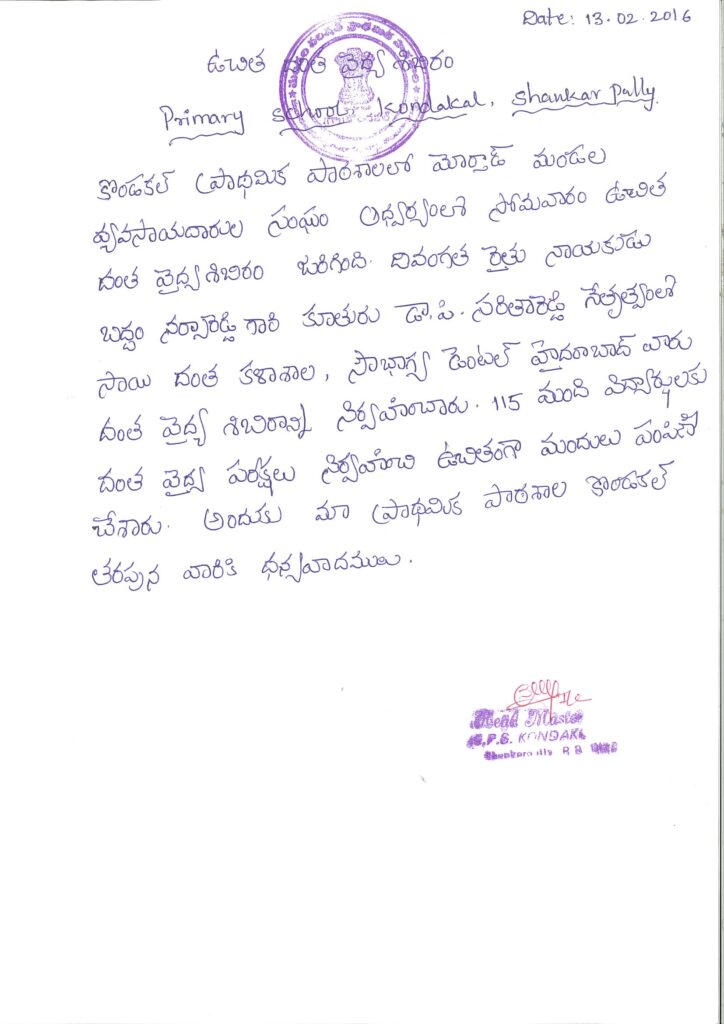 Date: 13.02.2016
ఉచిత దంత వైద్య శిబిరం
Primary School, Kondakal, Shankarpally.
కొండకల్ ప్రాథమిక పాఠశాలలో మోర్తాడ్ మండల
వ్యవసాయదారుల సంఘం ఆధ్వర్యంలో సోమవారం ఉచిత
దంత వైద్య శిబిరం జరిగింది. దివంగత రైతు నాయకుడు
బద్దం నర్సారెడ్డి గారి కూతురు డా.పి. సరితారెడ్డి నేతృత్వంలో
సాయి దంత కళాశాల, సౌభాగ్య డెంటల్ హైదరాబాద్ వారు
దంత వైద్య శిబిరాన్ని నిర్వహించారు. 115 మంది విద్యార్థులకు
దంత వైద్య పరీక్షలు నిర్వహించి ఉచితంగా మందులు పంపిణీ
చేశారు. అందుకు మా ప్రాథమిక పాఠశాల కొండకల్
తరపున వారికి ధన్యవాదములు.
Head Master
KONDAKL